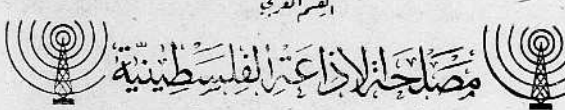 القسم العربي
مصلحة الإذاعة الفلسطينية